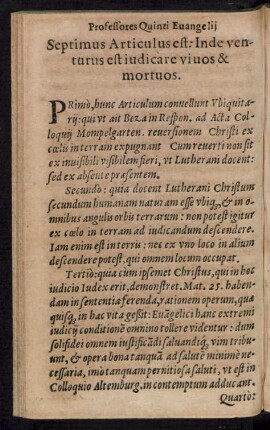 Professores Quinti Euangelij
Septimus Articulus est: Inde ven-
turus est iudicare viuos &
mortuos.
PRimò, hunc Articulum conuellunt Vbiquita-
rij: qui vt ait Beza in Respon. ad Acta Col-
loquij Mompelgarten. reuersionem Christi ex
cœlis in terram expugnant Cum reuerti non sit
ex inuisibili visibilem fieri, vt Lutherani docent:
sed ex absente præsentem.
Secundò: quia docent Lutherani Christum
secundum humanam naturam esse vbiq;, & in o-
mnibus angulis orbis terrarum: non potest igitur
ex cœlo in terram ad iudicandum descendere.
Iam enim est in terris: nec ex vno loco in alium
descendere potest, qui omnem locum occupat.
Tertiò: quia cum ipsemet Christus, qui in hoc
iudicio Iudex erit, demonstret. Mat. 25. haben-
dam in sententia ferenda, rationem operum, quæ
quisq;, in hac vita gessit: Euãgelici hanc extremi
iudicij conditionẽ omnino tollere videntur: dum
solifidei omnem iustificãdi saluandiq́; vim tribu-
unt, & opera bona tanquã ad salutẽ minimè ne-
cessaria, imò tanquam pernitiosa saluti, vt est in
Colloquio Altemburg. in contemptum adducant.
Quartò: